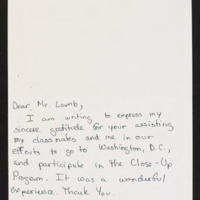 Dear Mr. Lamb,
I am writing to express my
sincere gratitude for your assisting
my classmates and me in our
efforts to go to Washington, D.C.,
and participate in the Close-Up
Program. It was a wonderful
experience. Thank You.